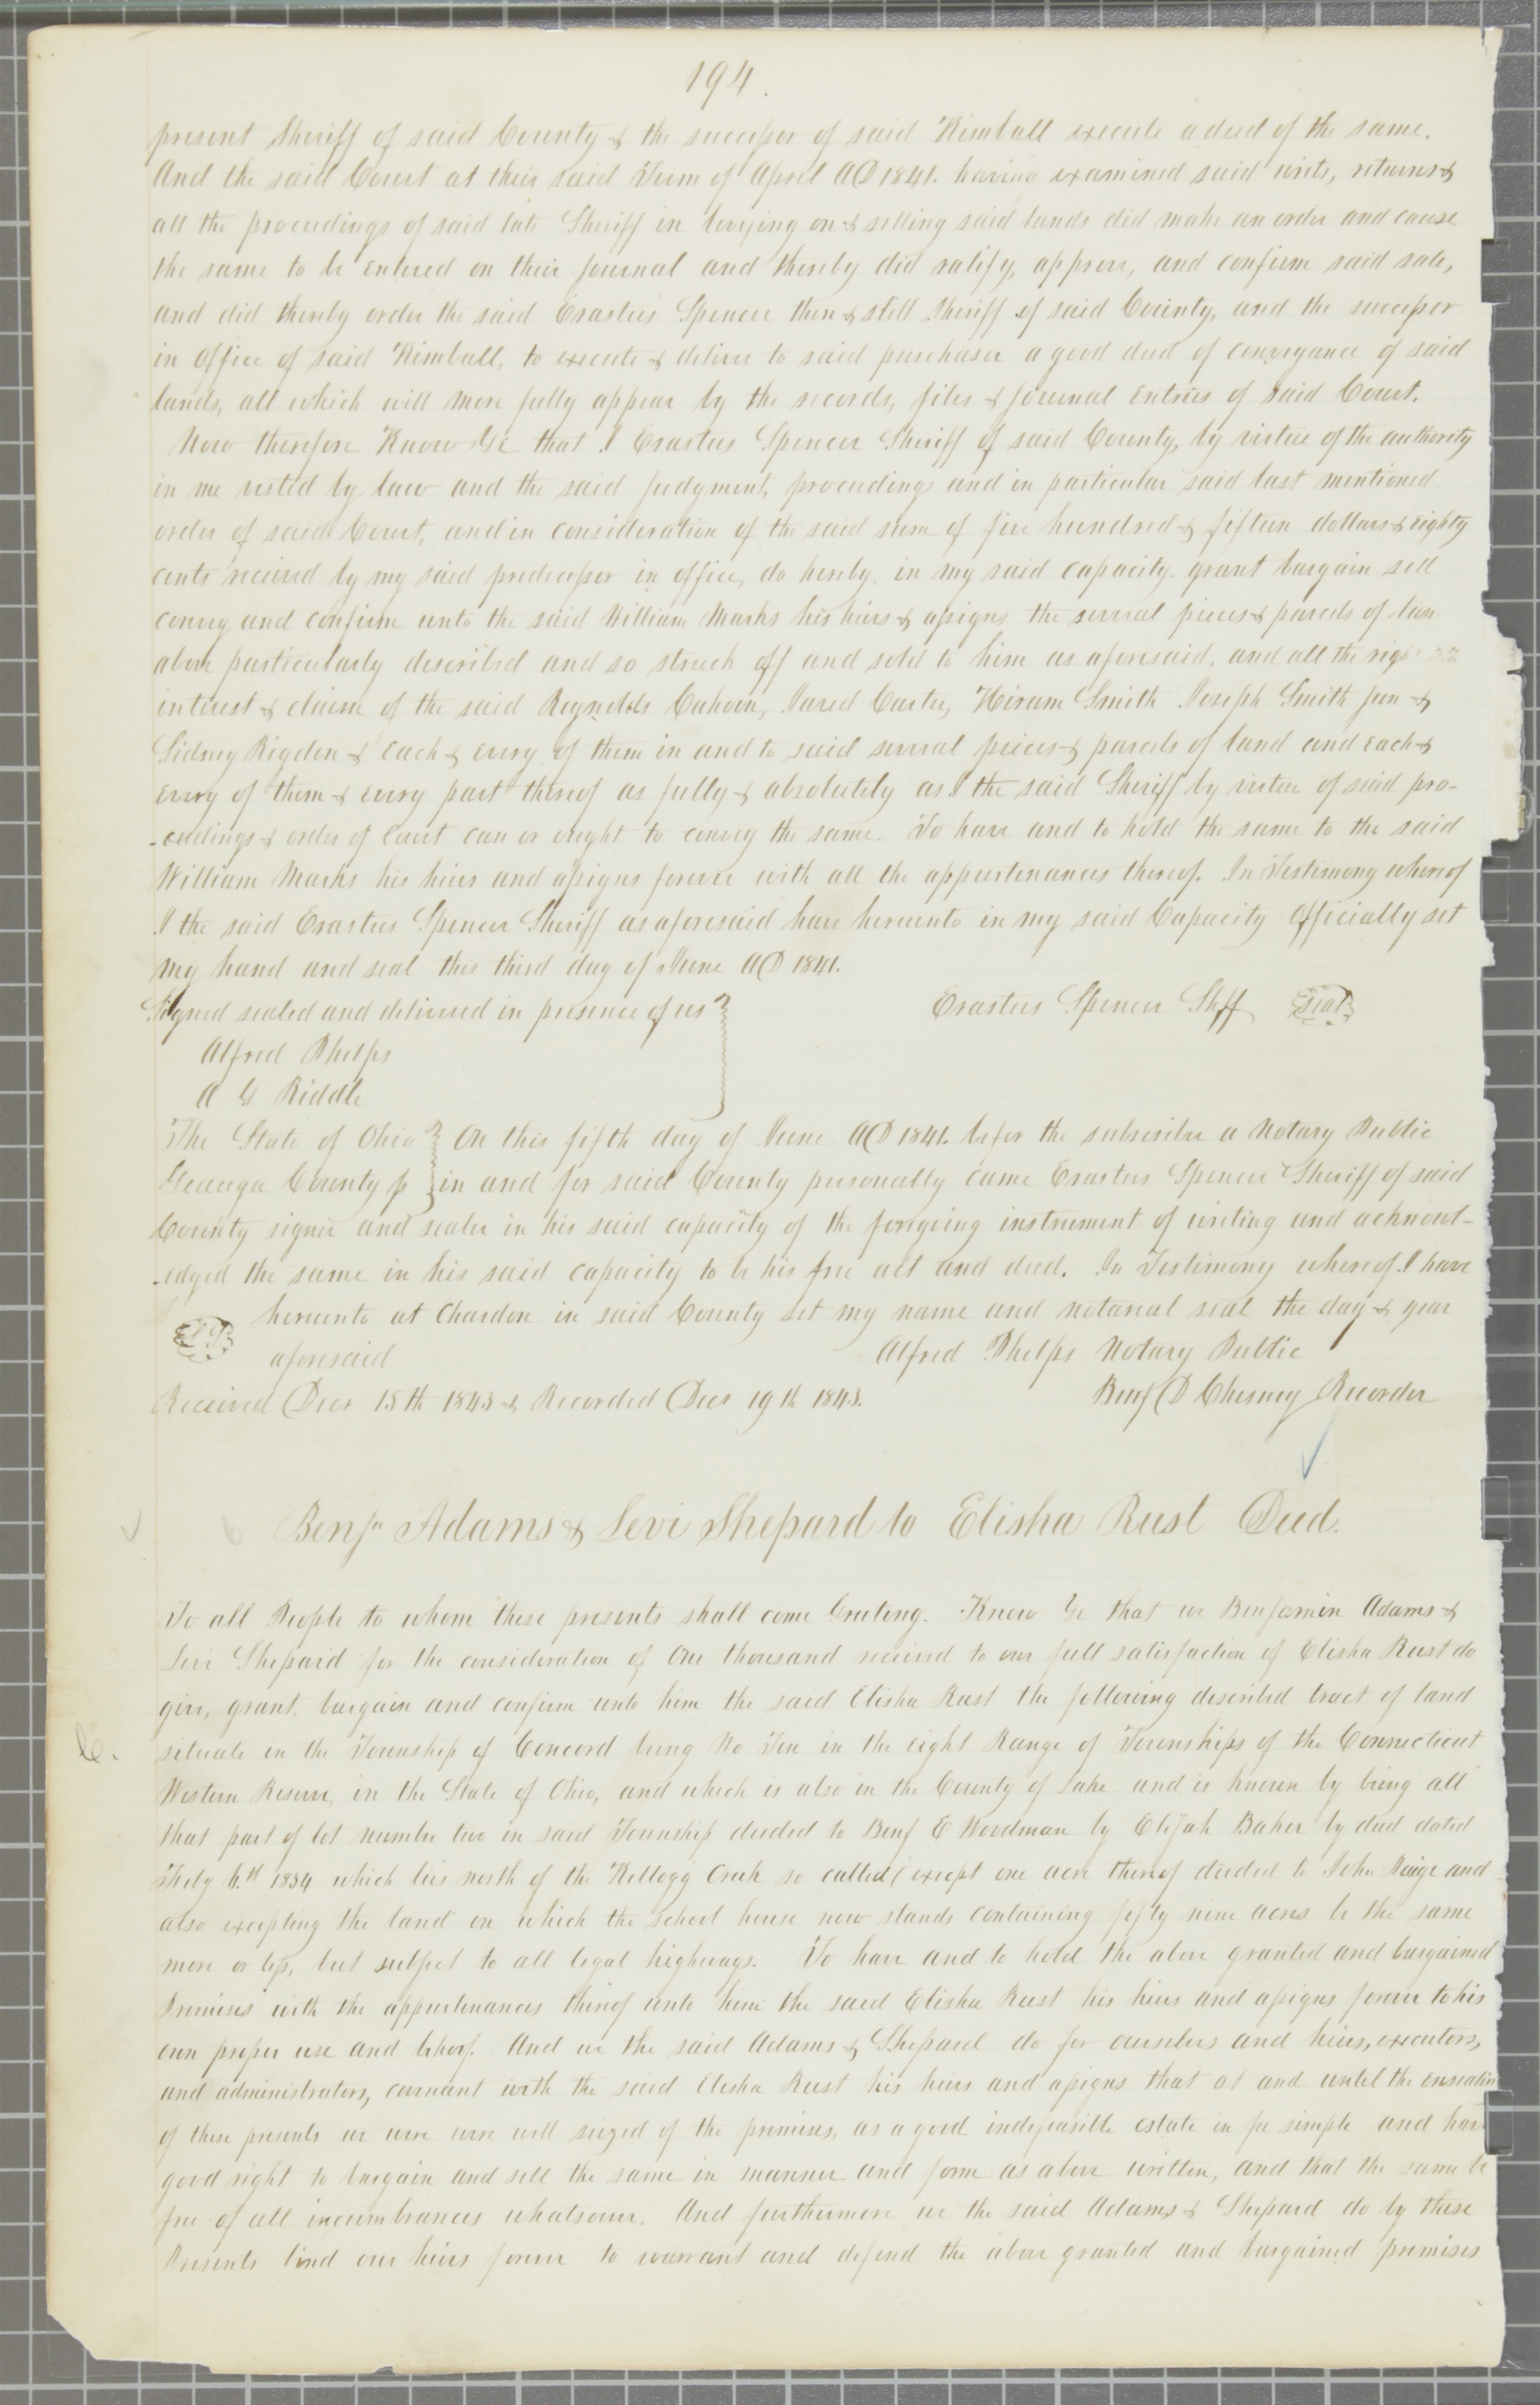 194.
present Sheriff of said County & the successor of said Kimball execute a deed of the same.
And the said Court at their said Term of April AD 1841. having examined said writs, returns &
all the proceedings of said late Sheriff in levying on & selling said lands did make an order and cause
the same to be entered on their Journal and thereby did ratify, approve, and confirm said sale,
and did thereby order the said Erastus Spencer then & still Sheriff of said County, and the successor
in office of said Kimball, to execute & deliver to said purchaser a good deed of conveyance of said
lands, all which will more fully appear by the records, files & Journal Entries of said Court.
Now therefore Know Ye that I Erastus Spencer Sheriff of said County, by virtue of the authority
in me vested by law and the said Judgment, proceedings and in particular said last mentioned
order of said Court, and in consideration of the said sum of five hundred & fifteen dollars & eighty
cents received by my said predecessor in office, do hereby, in my said capacity. grant bargain sell
convey and confirm unto the said William Marks his heirs & assigns the several pieces & parcels of lan
above particularly described and so struck off and sold to him as aforesaid, and all the righ
interest & claim of the said Reynolds Cahoon, Jared Carter, Hiram Smith Joseph Smith jun &
Sidney Rigdon & each & every of them in and to said several pieces & parcels of land and each &
every of them & every part thereof as fully & absolutely as I the said Sheriff by virtue of said pro-
-ceedings & order of Court can or ought to convey the same. To have and to hold the same to the said
William Marks his heirs and assigns forever with all the appurtenances thereof. In Testimony whereof
I the said Erastus Spencer Sheriff as aforesaid have hereunto in my said Capacity Officially set
my hand and seal this third day of June AD 1841.
Signed sealed and delivered in presence of us Erastus Spencer Shff seal
Alfred Phelps
A G Riddle
The State of Ohio On this fifth day of June AD 1841. before the subscriber a Notary Public
Geauga County ss in and for said County personally came Erastus Spencer Sheriff of said
County signer and sealer in his said capacity of the foregoing instrument of writing and acknowl-
-edged the same in his said capacity to be his free act and deed. In Testimony whereof I have
hereunto at Chardon in said County set my name and notarial seal the day & year
aforesaid Alfred Phelps Notary Public
Received Decr 15th 1843 & Recorded Decr 19th 1843. Benj D Chesney Recorder
Benjn Adams & Levi Shepard to Elisha Rust Deed.
To all People to whom these presents shall come Greeting. Know Ye that we Benjamin Adams &
Levi Shepard for the consideration of One thousand received to our full satisfaction of Elisha Rust do
give, grant, bargain and confirm unto him the said Elisha Rust the following described tract of land
situate in the Township of Concord being No Ten in the eight Range of Townships of the Connecticut
Western Reserve, in the State of Ohio, and which is also in the County of Lake and is known by being all
that part of lot number two in said Township deeded to Benj E Woodman by Elijah Baker by deed dated
July 6th 1834 which lies north of the Kellogg Creek so called (except one acre thereof deeded to John and
also excepting the land on which the school house now stands containing fifty nine acres be the same
more or less, but subject to all legal highways. To have and to hold the above granted and bargained
Premises with the appurtenances thereof unto him the said Elisha Rust his heirs and assigns forever to his
own proper use and behoof. And we the said Adams & Shepard do for ourselves and heirs, executors,
and administrators, covenant with the said Elisha Rust his heirs and assigns that at and until the ensealing
of these presents we were were well seized of the premises, as a good indefeasible estate in fee simple and have
good right to bargain and sell the same in manner and form as above written, and that the same be
free of all incumbrances whatsoever. And furthermore we the said Adams & Shepard do by these
Presents bind our heirs forever to warrant and defend the above granted and bargained premises